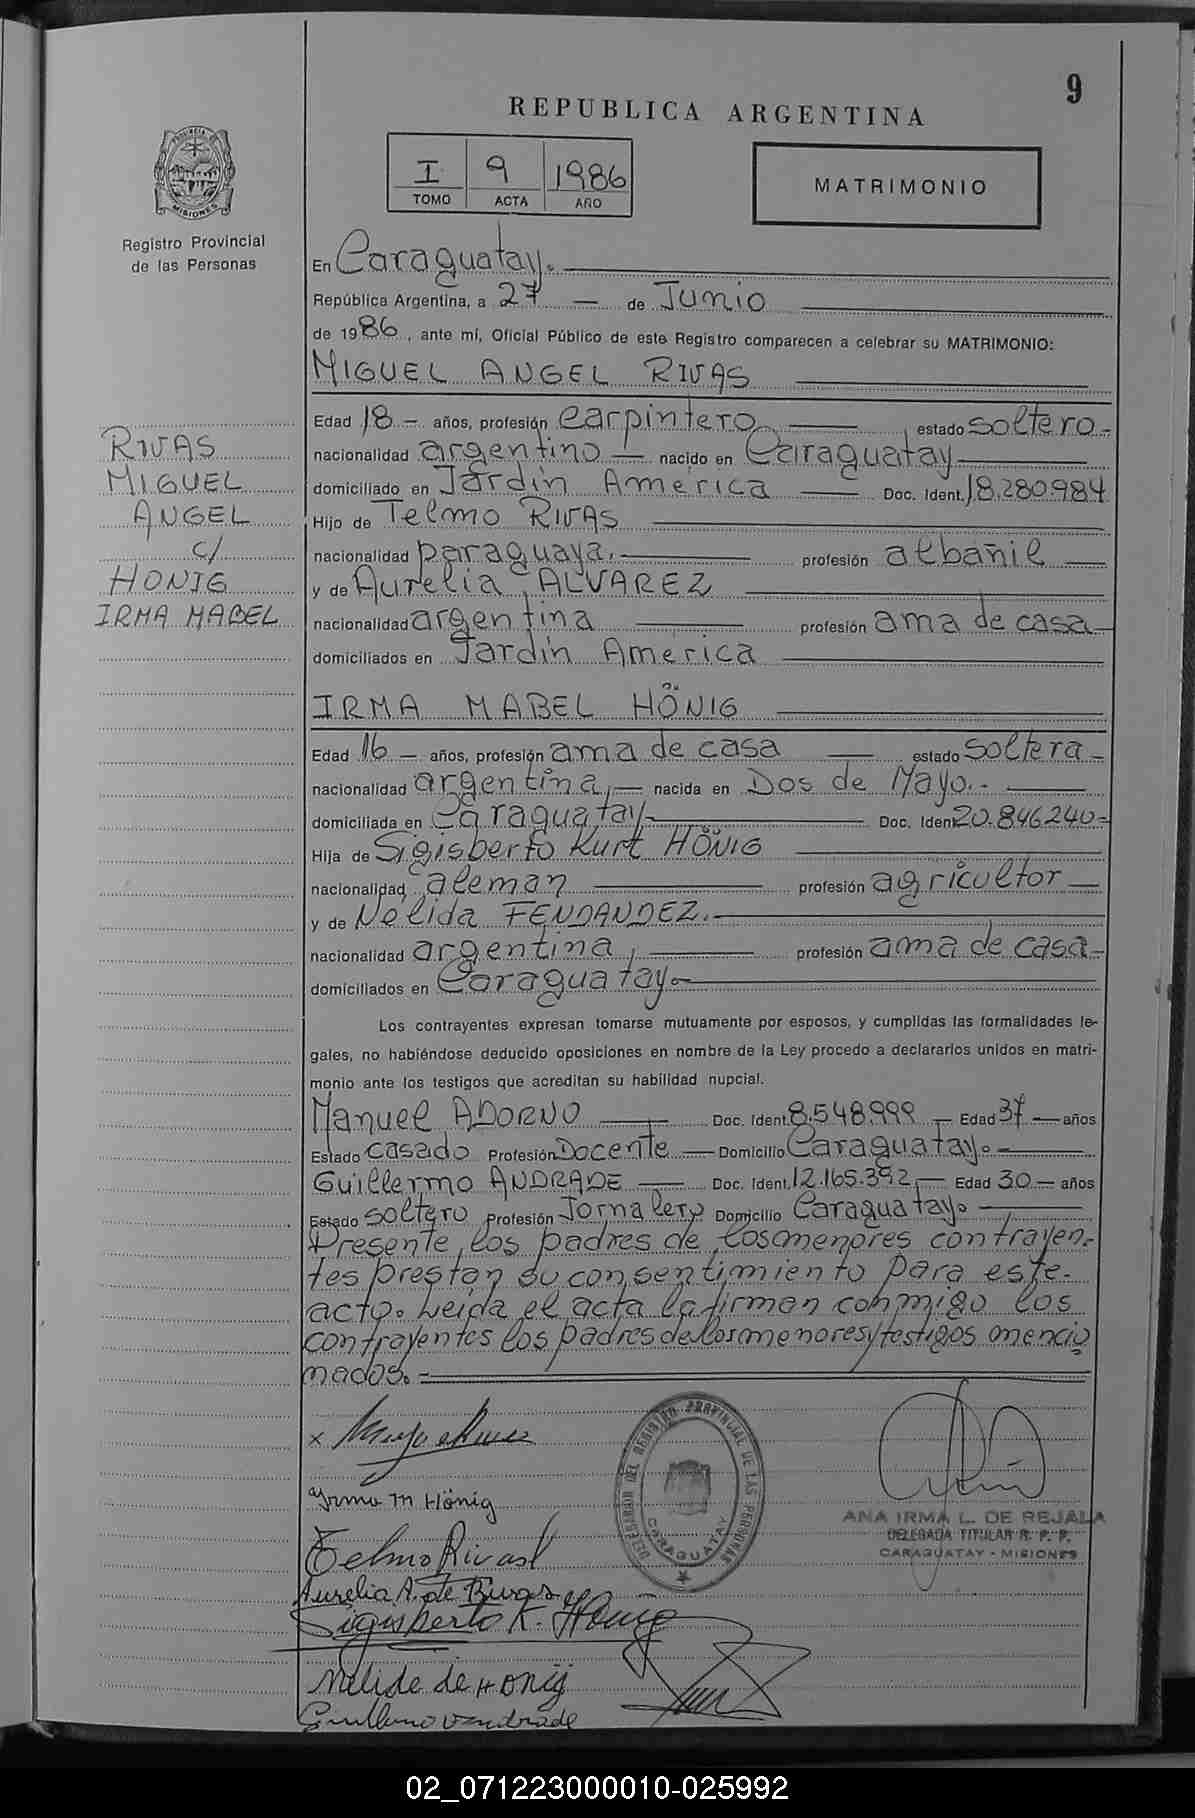 9
REPUBLICA ARGENTINA
I 9 1986
TOMO ACTA AÑO
MATRIMONIO
PROVINCIA DE
MISIONES
Registro Provincial
de las Personas
RIVAS
MIGUEL
ANGEL
c/
HONIG
IRMA MABEL
En Caraguatay.
República Argentina, a 27 — de Junio
de 1986, ante mí, Oficial Público de este Registro comparecen a celebrar su MATRIMONIO:
MIGUEL ANGEL RIVAS
Edad 18 — años, profesión carpintero — estado soltero-
nacionalidad argentino — nacido en Caraguatay
domiciliado en Jardín América — Doc. Ident. 18.280.984
Hijo de Telmo RIVAS
nacionalidad paraguaya. — profesión albañil —
y de Aurelia ALVAREZ
nacionalidad argentina — profesión ama de casa-
domiciliados en Jardín América
IRMA MABEL HÖNIG
Edad 16 — años, profesión ama de casa — estado soltera-
nacionalidad argentina, — nacida en Dos de Mayo.-
domiciliada en Caraguatay — Doc. Iden 20.846240-
Hija de Sigisberto Kurt HÖNIG
nacionalidad aleman — profesión agricultor —
y de Nélida FENDANDEZ.-
nacionalidad argentina, — profesión ama de casa-
domiciliados en Caraguatay.-
Los contrayentes expresan tomarse mutuamente por esposos, y cumplidas las formalidades le-
gales, no habiéndose deducido oposiciones en nombre de la Ley procedo a declararlos unidos en matri-
monio ante los testigos que acreditan su habilidad nupcial.
Manuel ADORNO — Doc. Ident. 8.548.999 — Edad 37 — años
Estado casado Profesión Docente — Domicilio Caraguatay.-
Guillermo ANDRADE — Doc. Ident. 12.165.392,— Edad 30 — años
Estado soltero Profesión Jornalero Domicilio Caraguatay.
Presente los padres de los menores contrayen-
tes prestan su consentimiento para este.
acto. Leída el acta la firman conmigo los
contrayentes los padres de los menores y testigos mencio
nados.-
x
Irma M Hönig
Telmo Rivas
Aurelia A. de Rivas
Sigisberto K. Hönig
Nelide de Honig
Guillermo Andrade
DELEGACION DEL REGISTRO PROVINCIAL DE LAS PERSONAS
CARAGUATAY
ANA IRMA L. DE REJALA
DELEGADA TITULAR R. P. P.
CARAGUATAY - MISIONES
02_071223000010-025992